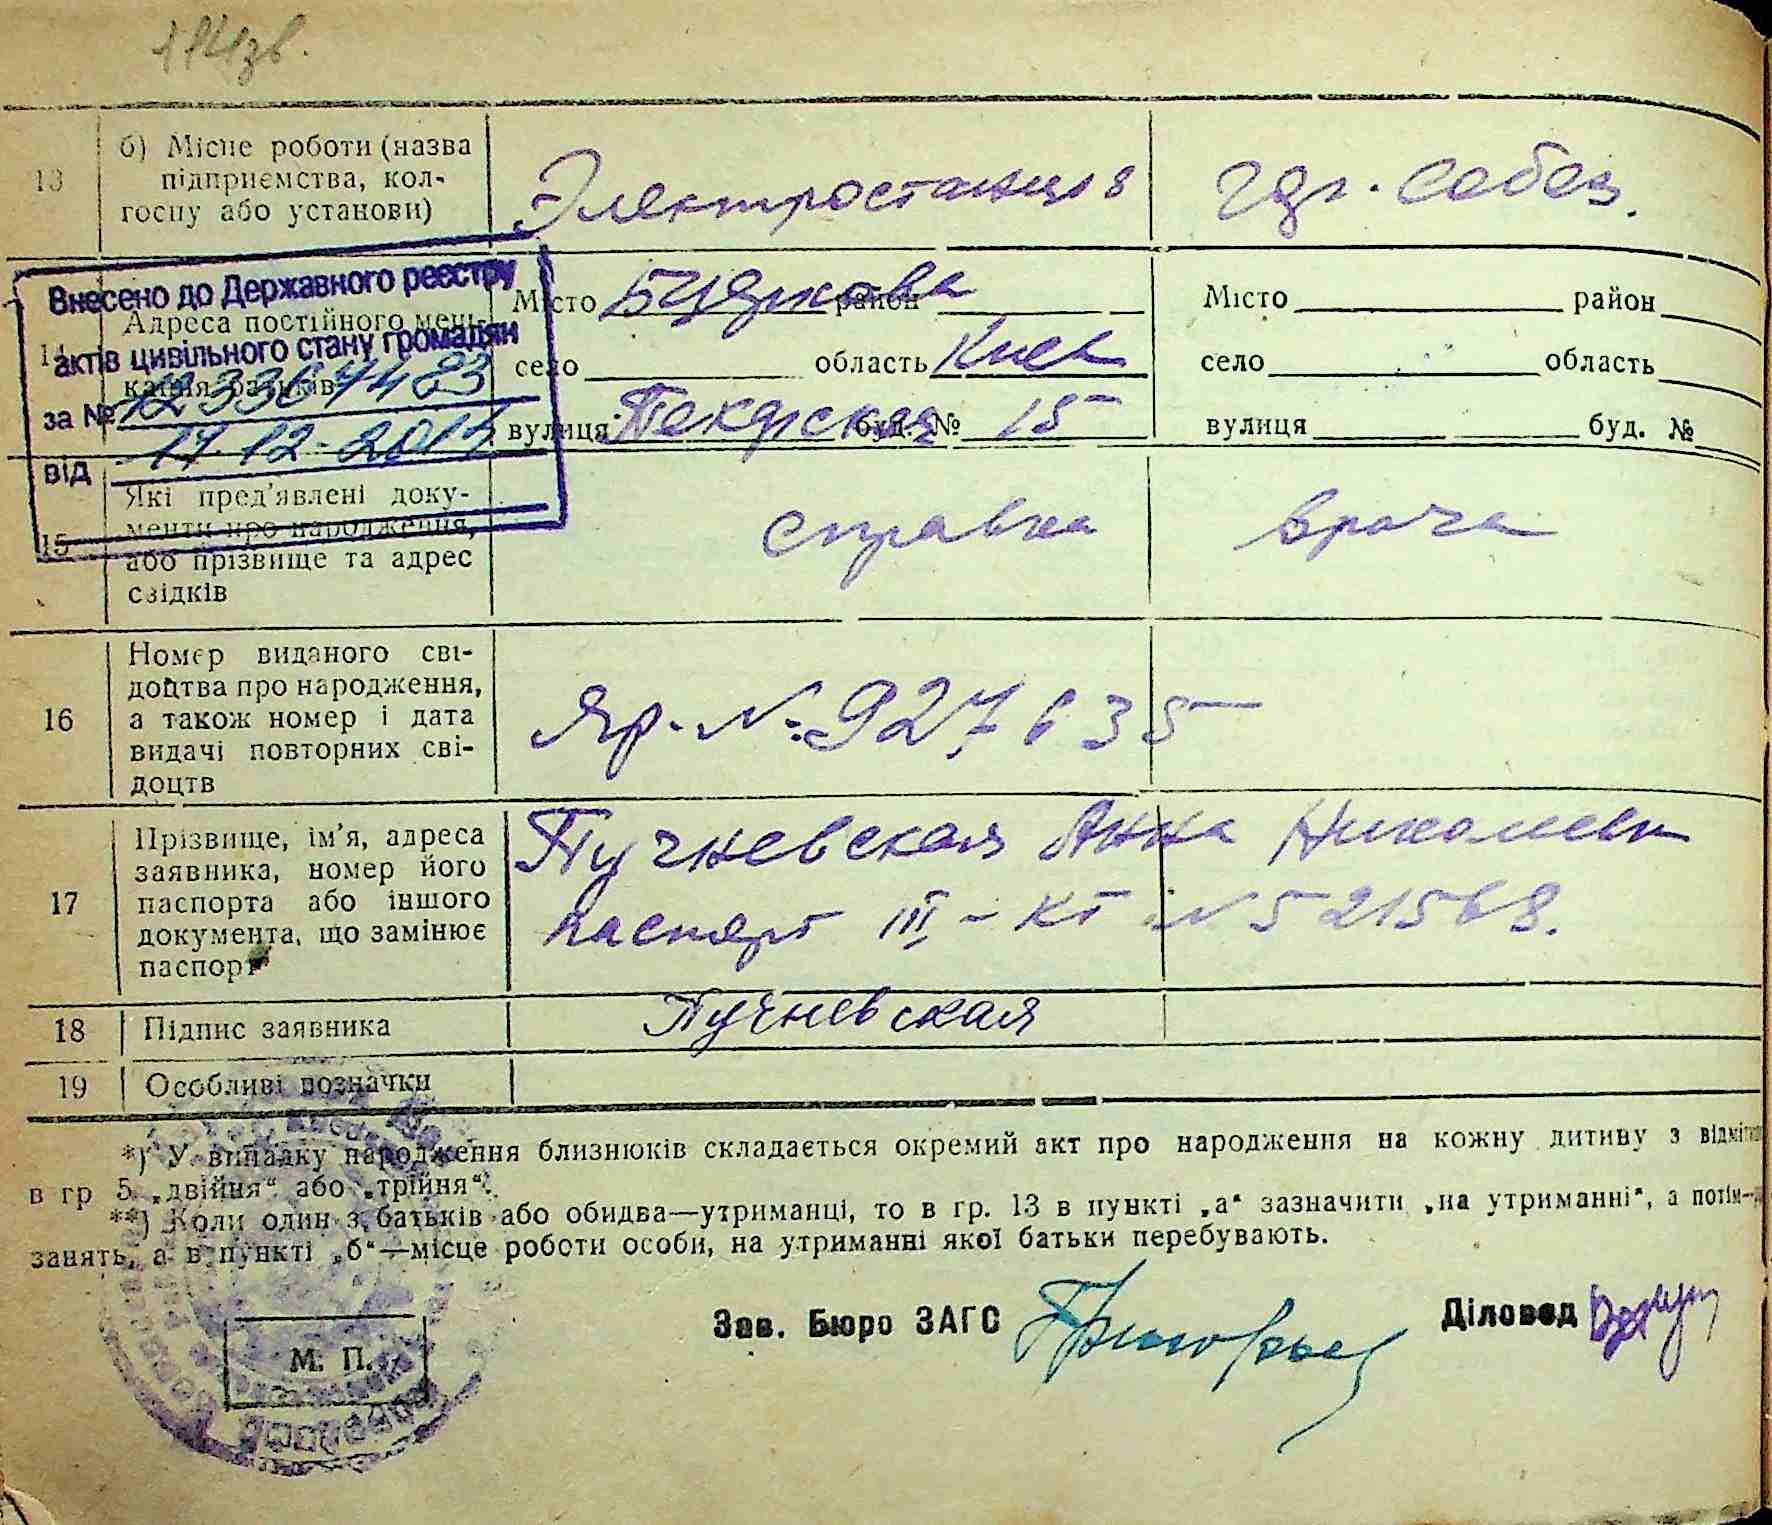 114зв.
13
б) Місце роботи (назва
підприємства, кол-
госпу або установи)
Электростанция
Внесено до Державного реєстру
актів цивільного стану громадян
за №
від 17.12.2013
14
Адреса постійного меш-
кання батьків
Місто район
село область Киев
вулиця Пекарская буд. № 15
Місто район
село область
вулиця буд. №
15
Які пред'явлені доку-
менти про народження,
або прізвище та адрес
свідків
справка врача
16
Номер виданого сві-
доцтва про народження,
а також номер і дата
видачі повторних сві-
доцтв
Яр- №: 927635
17
Прізвище, ім'я, адреса
заявника, номер його
паспорта або іншого
документа, що замінює
паспорт
Пучневская Анна Николаевн
паспорт III - КТ N 521568.
18
Підпис заявника
Пучневская
19
Особливі позначки
*) У випадку народження близнюків складається окремий акт про народження на кожну дитину з відмітк
в гр 5 „двійня“ або „трійня“.
**) Коли один з батьків або обидва—утриманці, то в гр. 13 в пункті „а“ зазначити „на утриманні“, а потім—
занять, а в пункті „б“—місце роботи особи, на утриманні якої батьки перебувають.
Зав. Бюро ЗАГС
Діловод
М. П.